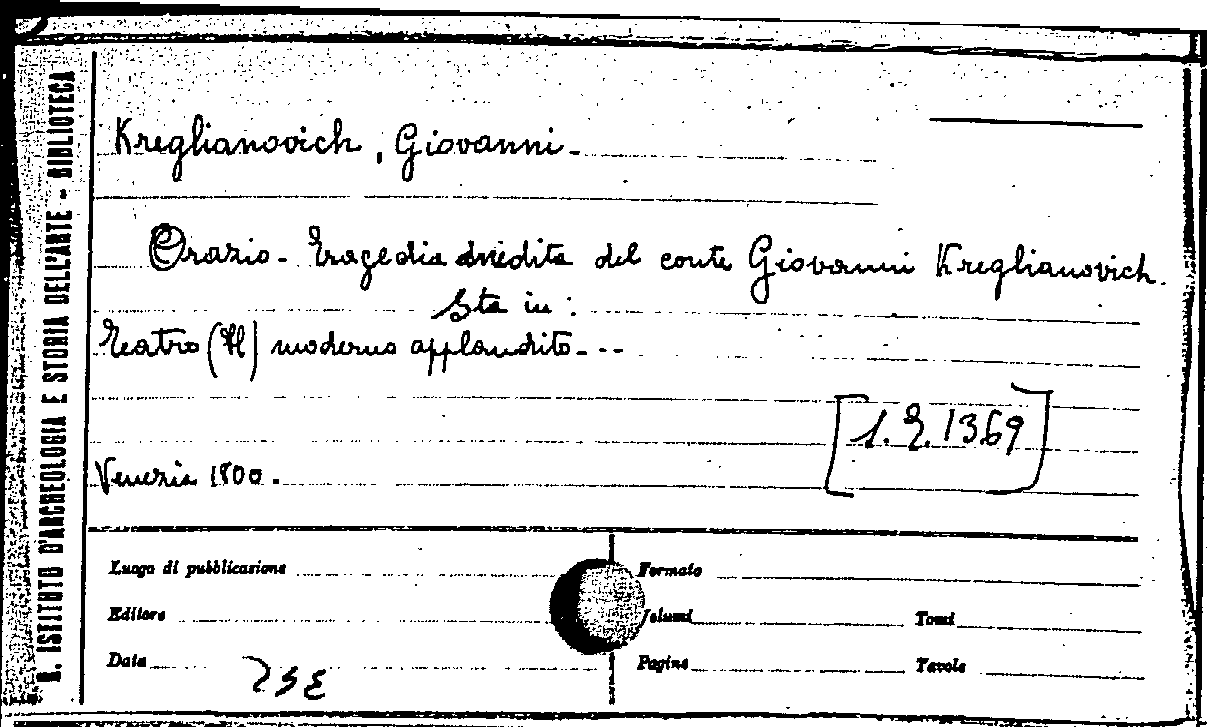 R. ISTITUTO D'ARCHEOLOGIA E STORIA DELL'ARTE - BIBLIOTECA
Kreglianovich, Giovanni-
Orazio- Tragedia inedita del conte Giovanni Kreglianovich.
Sta in:
Teatro (Il) moderno applaudito---
[1. 2. 1369]
Venezia 1800.
Luogo di pubblicazione
Formato
Editore
Volumi
Tomi
Data
Pagine
Tavole